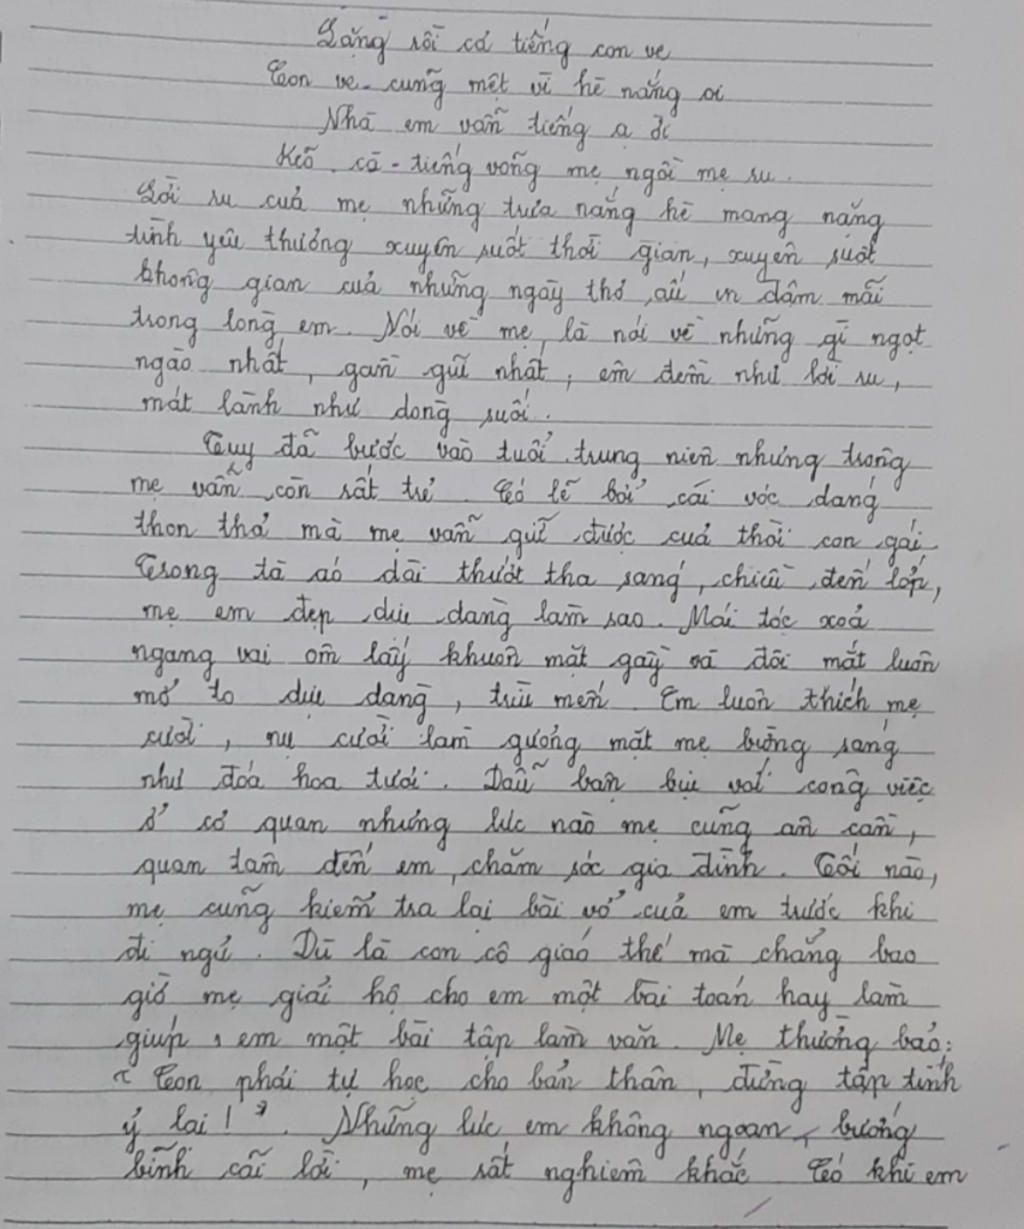 Lặng rồi cả tiếng con ve
Con ve cũng mệt vì hè nắng oi
Nhà em vẫn tiếng ạ ời
Kẽo cà tiếng võng mẹ ngồi mẹ ru.
Lời ru của mẹ những trưa nắng hè mang nặng
tình yêu thương xuyên suốt thời gian, xuyên suốt
không gian của những ngày thơ ấu in đậm mãi
trong lòng em. Nói về mẹ, là nói về những gì ngọt
ngào nhất, gần gũi nhất, êm đềm như lời ru,
mát lành như dòng suối.
Tuy đã bước vào tuổi trung niên nhưng trông
mẹ vẫn còn rất trẻ. Có lẽ bởi cái vóc dáng
thon thả mà mẹ vẫn giữ được của thời con gái.
Trong tà áo dài thướt tha sáng, chiều đến lớp,
mẹ em đẹp dịu dàng làm sao. Mái tóc xoả
ngang vai ôm lấy khuôn mặt gầy và đôi mắt luôn
mở to dịu dàng, trìu mến. Em luôn thích mẹ
cười, nụ cười làm gương mặt mẹ bừng sáng
như đóa hoa tươi. Dẫu bận bịu với công việc
ở cơ quan nhưng lúc nào mẹ cũng ân cần,
quan tâm đến em, chăm sóc gia đình. Tối nào,
mẹ cũng kiểm tra lại bài vở của em trước khi
đi ngủ. Dù là con cô giáo thế mà chẳng bao
giờ mẹ giải hộ cho em một bài toán hay làm
giúp em một bài tập làm văn. Mẹ thường bảo:
" Con phải tự học cho bản thân, đừng tập tính
ỷ lại! ". Những lúc em không ngoan, bướng
bỉnh cãi lời, mẹ rất nghiêm khắc. Có khi em